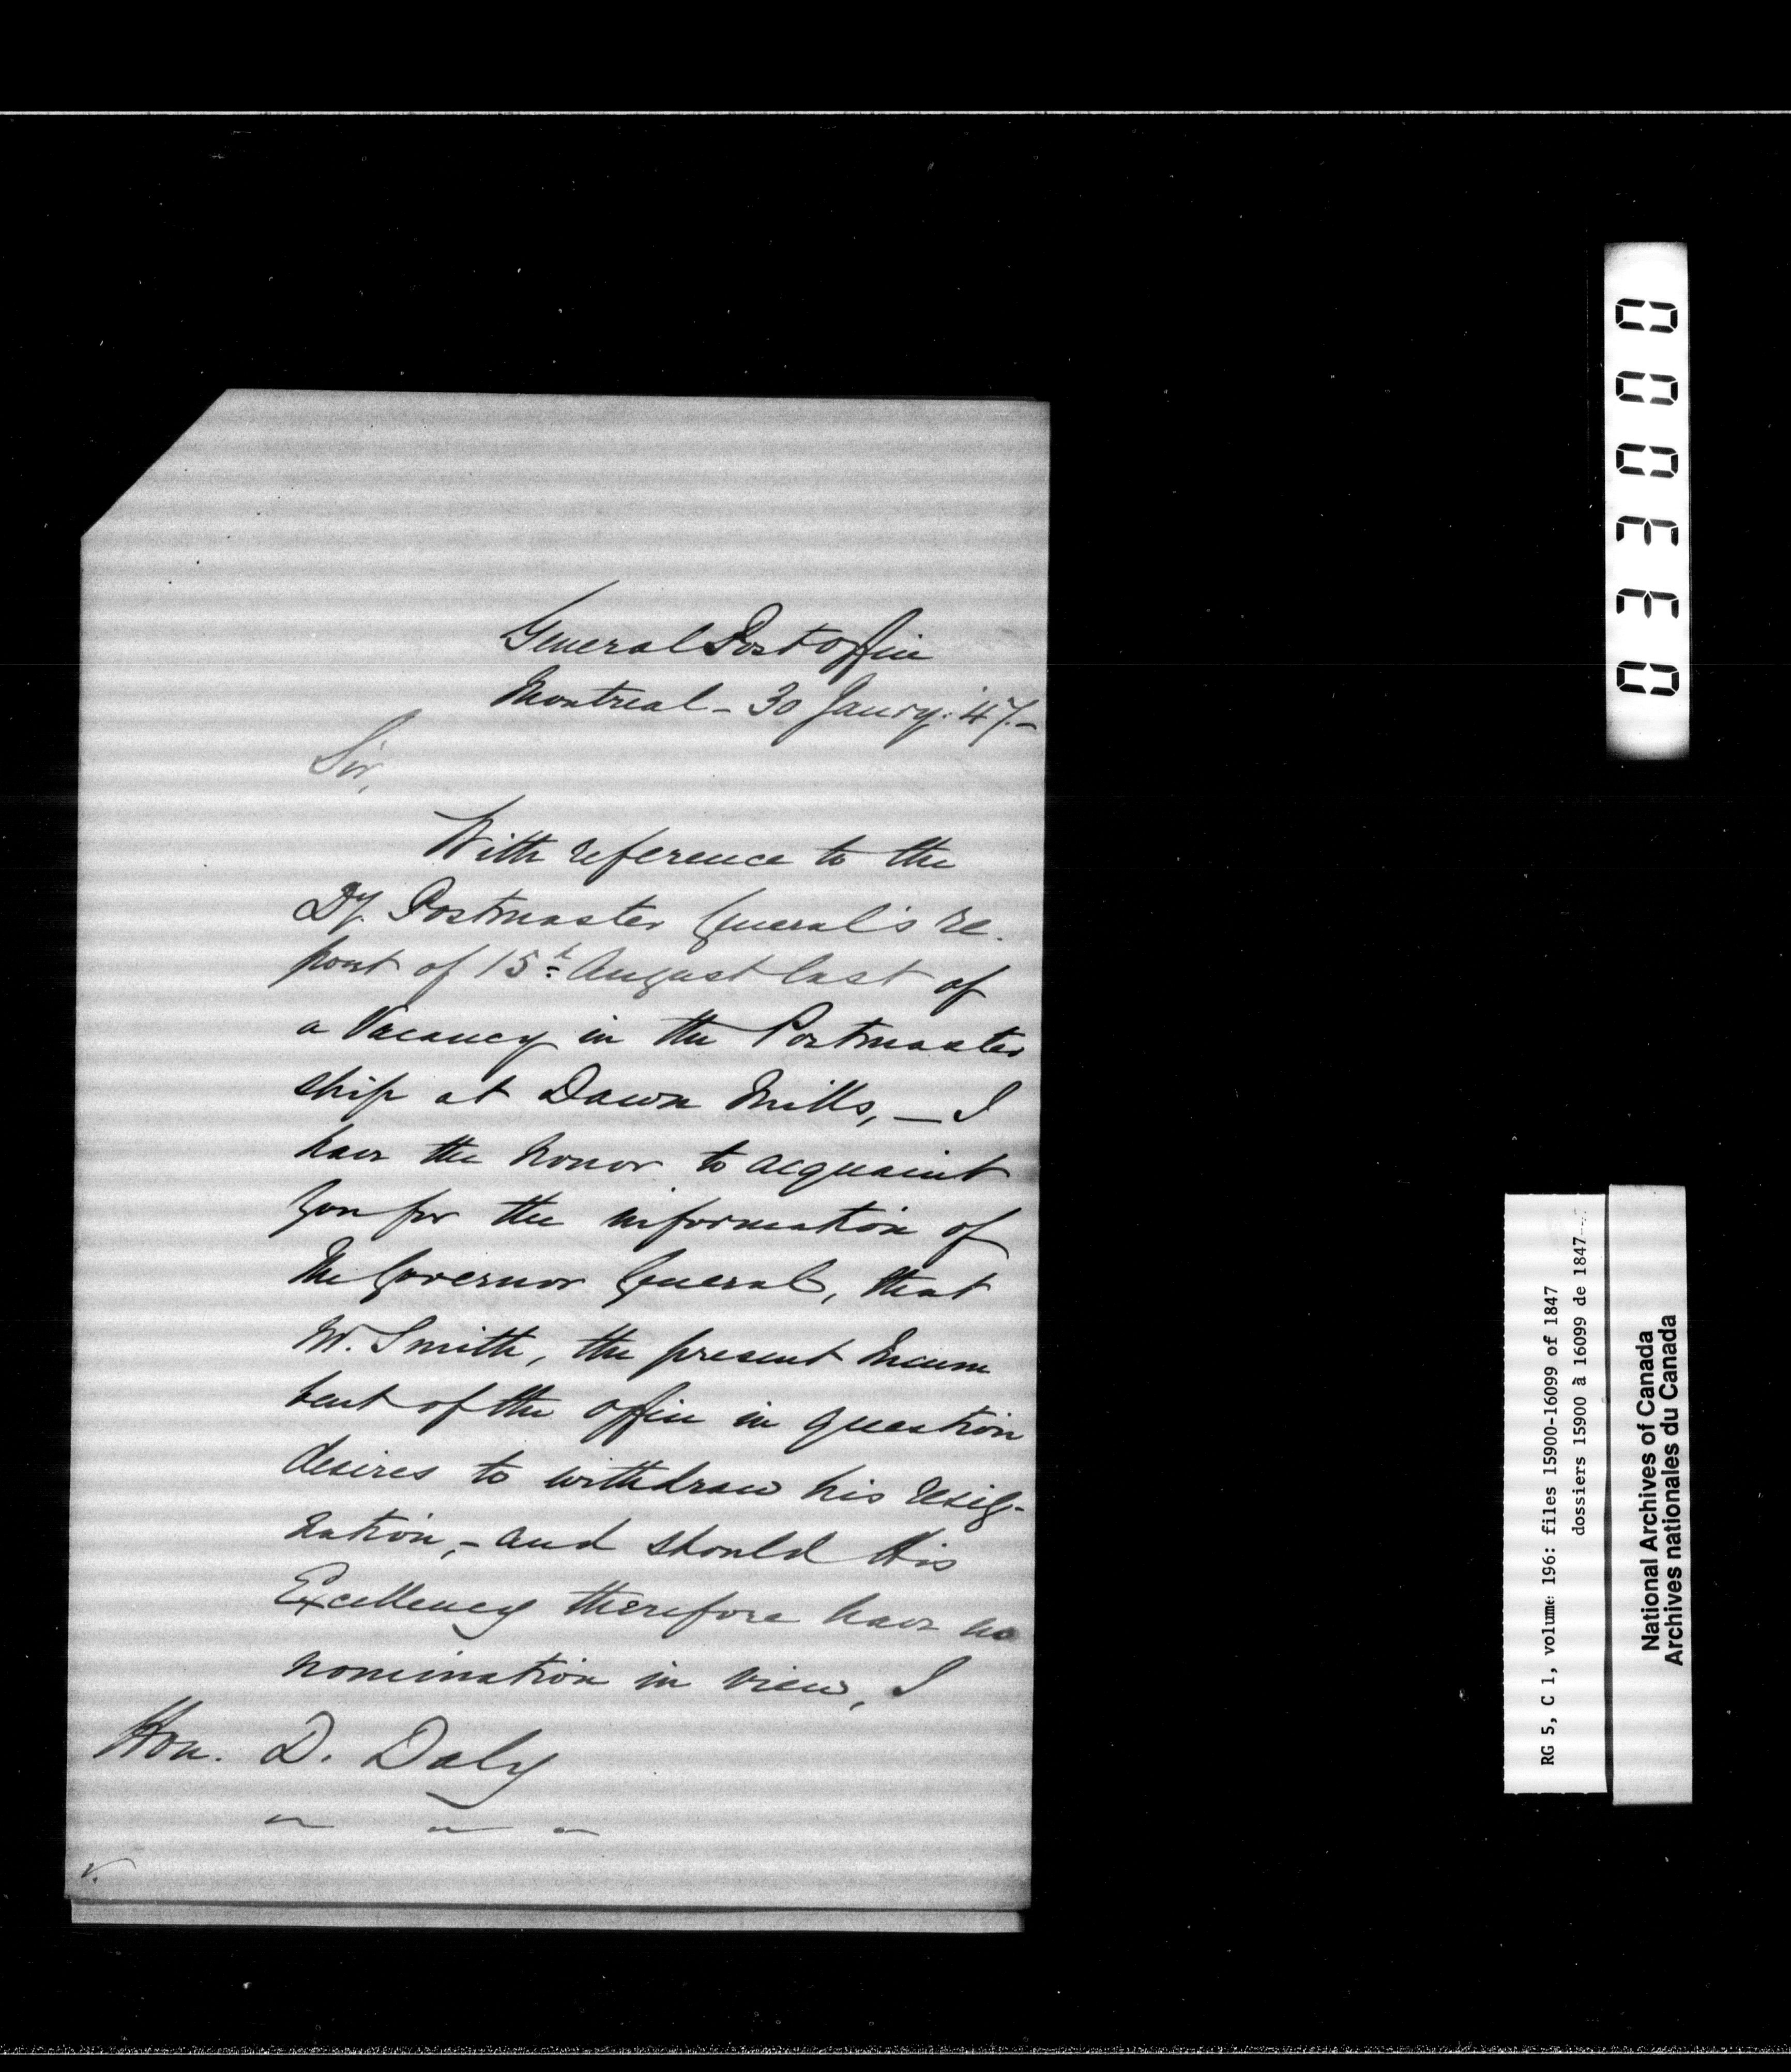 General Post Office
Montreal - 30 Janry. '47. -
Sir,
With reference to the
Dy. Postmaster General's re-
port of 15th August last of
a Vacancy in the Postmaster
ship at Dawn Mills, - I
have the honor to acquaint
you for the information of
The Governor General, that
Mr. Smith, the present Incum
bent of the office in question
desires to withdraw his resig-
nation, - and should His
Excellency therefore have no
nomination in view, I
Hon. D. Daly
033000
RG 5, C 1, volume 196: files 15900-16099 of 1847
dossiers 15900 à 16099 de 1847
National Archives of Canada
Archives nationales du Canada